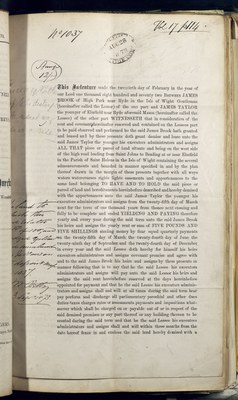 No 1037
Vol 17 fol 4
This Indenture made the twentieth day of February in the year of
our Lord one thousand eight hundred and seventy two Between JAMES
BROOK of High Park near Ryde in the Isle of Wight Gentleman
(hereinafter called the Lessor) of the one part and JAMES TAYLOR
the younger of Binfield near Ryde aforesaid Mason (hereinafter called the
Lessee) of the other part WITNESSETH that in consideration of the
rent and covenants hereinafter reserved and contained on the Lessees part
to be paid observed and performed he the said James Brook hath granted
and leased and by these presents doth grant demise and lease unto the
said James Taylor the younger his executors administrators and assigns
ALL THAT piece or parcel of land situate and being on the west side
of the high road leading from Saint Johns to Brading at or near Elmfield
in the Parish of Saint Helens in the Isle of Wight containing the several
admeasurements and bounded in manner specified in and by the plan
thereof drawn in the margin of these presents together with all ways
waters watercourses rights lights easements and appurtenances to the
same land belonging TO HAVE AND TO HOLD the said piece or
parcel of land and hereditaments hereinbefore described and hereby demised
with the appurtenances unto the said James Taylor the younger his
executors administrators and assigns from the twenty-fifth day of March
next for the term of one thousand years from thence next ensuing and
fully to be complete and ended YIELDING AND PAYING therefore
yearly and every year during the said term unto the said James Brook
his heirs and assigns the yearly rent or sum of FIVE POUNDS AND
FIVE SHILLINGS sterling money by four equal quarterly payments
on the twenty-fifth day of March, the twenty-fourth day of June, the
twenty-ninth day of September and the twenty-fourth day of December
in every year and the said Lessee doth hereby for himself his heirs
executors administrators and assigns covenant promise and agree with
and to the said James Brook his heirs and assigns by these presents in
manner following that is to say that he the said Lessee his executors
administrators and assigns will pay unto the said Lessor his heirs and
assigns the said rent hereinbefore reserved at the days hereinbefore
appointed for payment and that he the said Lessee his executors administrators
and assigns shall and will at all times during the said term bear
pay perform and discharge all parliamentary parochial and other rates
duties taxes charges rates or assessments payments and impositions whatsoever
which shall be charged on or payable out of or in respect of the
said demised premises or any part thereof or any building thereon to be
erected during the said term and that he the said Lessee his executors
administrators and assigns shall and will within three months from the
date hereof fence in and enclose the said land hereby demised with a